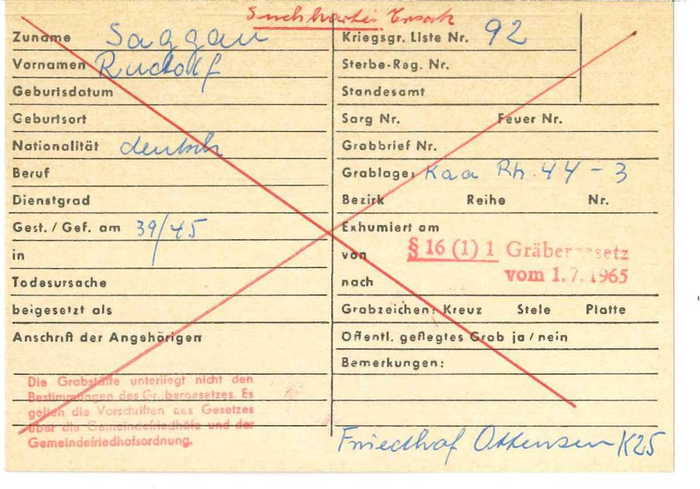 Suchkartei Ersatz
Zuname Saggau
Vornamen Rudolf
Geburtsdatum
Geburtsort
Nationalität deutsch
Beruf
Dienstgrad
Gest. / Gef. am 39/45
in
Todesursache
beigesetzt als
Anschrift der Angehörigen
Die Grabstätte unterliegt nicht den
Bestimmungen des Gräbergesetzes. Es
gelten die Vorschriften des Gesetzes
über die Gemeindefriedhöfe und der
Gemeindefriedhofsordnung.
Kriegsgr. Liste Nr. 92
Sterbe-Reg. Nr.
Standesamt
Sarg Nr. Feuer Nr.
Grabbrief Nr.
Grablage: Kaa Rh. 44 - 3
Bezirk Reihe Nr.
Exhumiert am
von
§ 16 (1) 1 Gräbergesetz
vom 1.7.1965
nach
Grabzeichen: Kreuz Stele Platte
Öffentl. gepflegtes Grab ja / nein
Bemerkungen:
Friedhof Ottensen K25